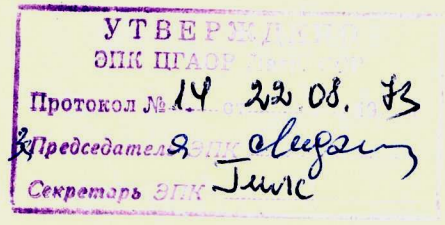 УТВЕРЖДЕНО
ЭПК ЦГАОР
Протокол № 14 22 08. 73
Председателя ЭПК
Секретарь ЭПК